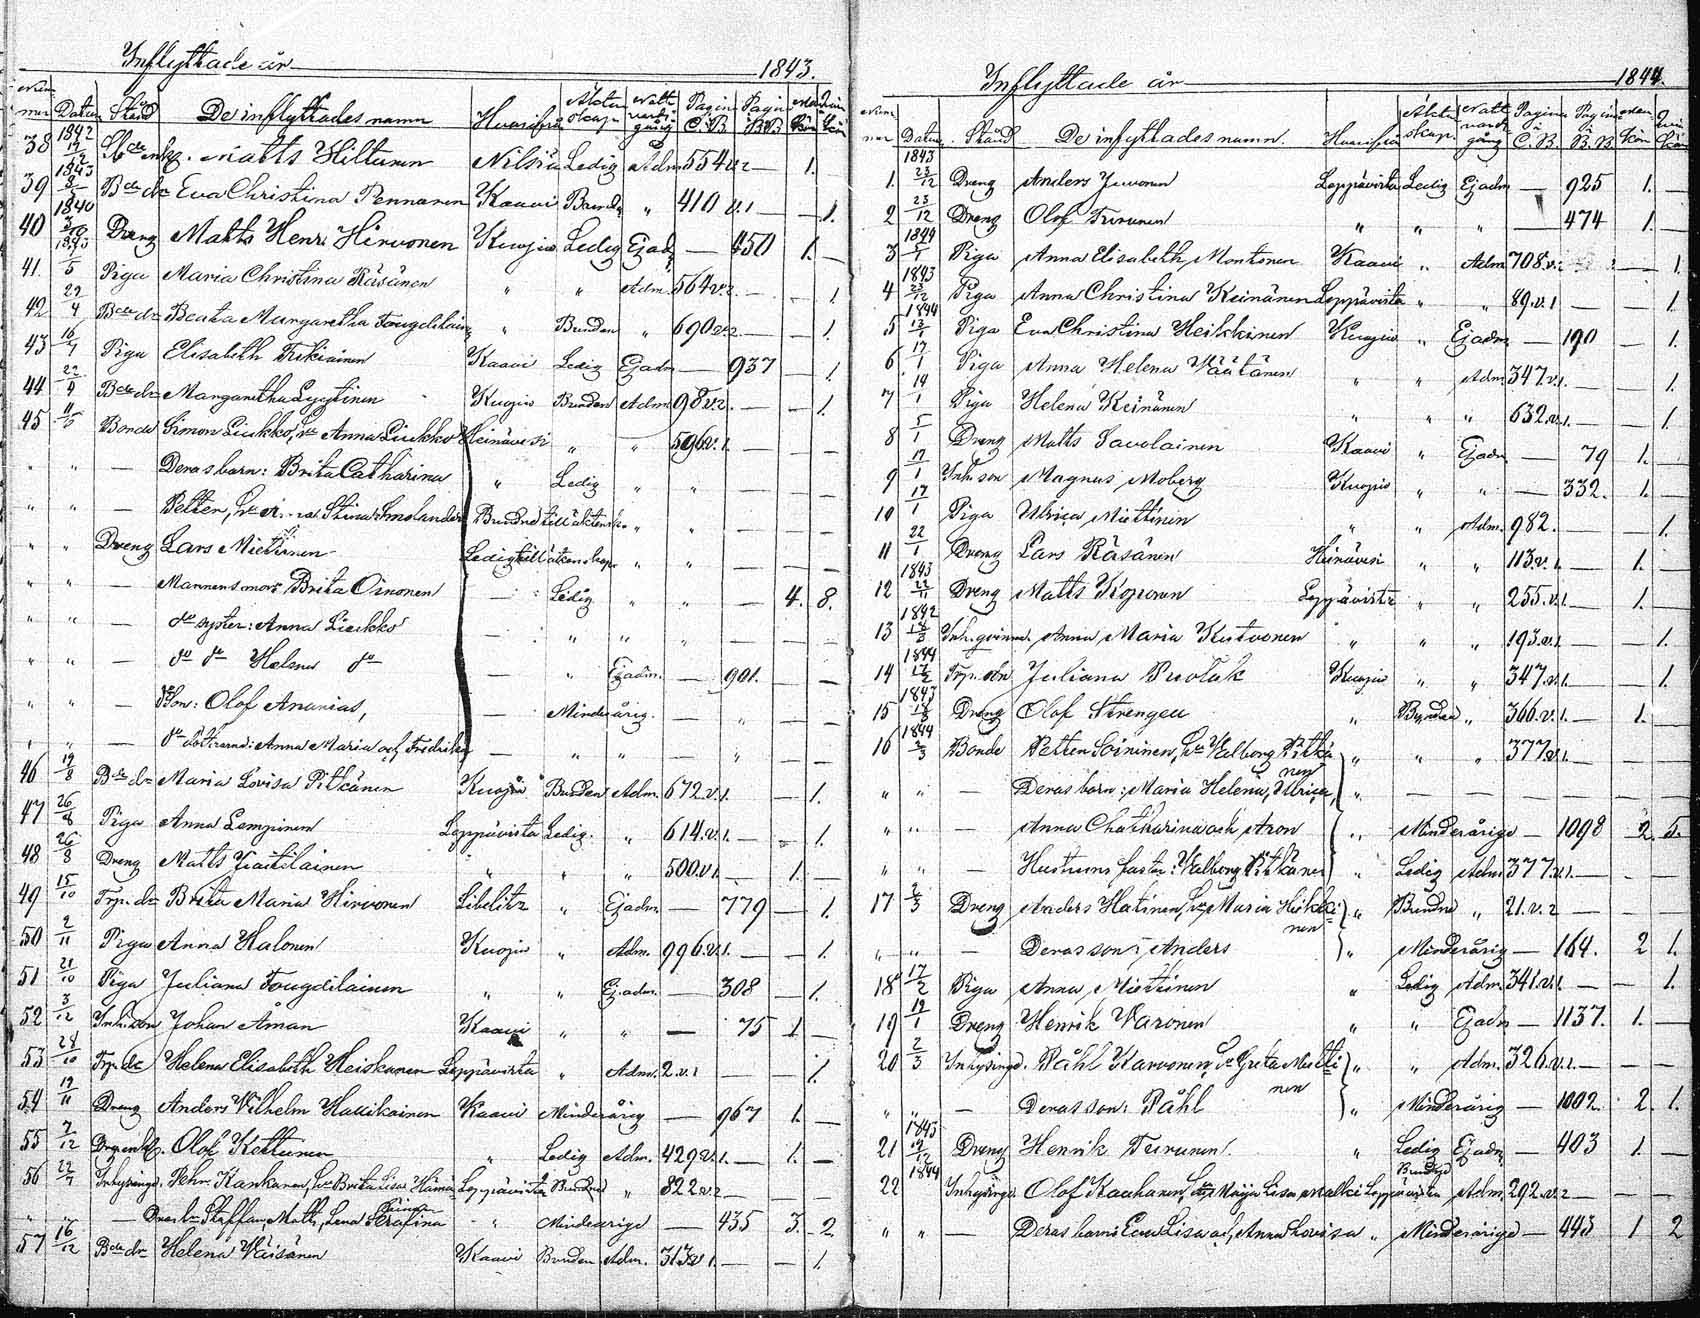 Inflyttade år 1843.
Nummer Datum Stånd De inflyttades namn Hvarifrån Äktenskap Nattvardsgång Pagina i C.B. Pagina i B.B. Mankön Qvinkön
38 1842 Matts Hiltunen Nilsiä Ledig Adm. 554 v.2 — 1. —
39 1843 Bde dr Eva Christina Pennanen Kaavi Bunden „ 410 v.1 — — 1.
40 1840 Dreng Matts Henr. Hirvonen Kuopio Ledig Ejadm — 450 1. —
41. 1843 Piga Maria Christina Räsänen „ „ Adm. 564 v.2. — — 1.
42 22/4 Bde dr Beata Margaretha Fougdilainen „ Bunden „ 690 v.2. — — 1.
43 Piga Elisabeth Tikkainen Kaavi Ledig Ejadm — 937 — 1.
44 22/4 Bde dr Margaretha Lyytinen Kuopio Bunden Adm. 98 v.2. — — 1.
45 11/5 Bonde Simon Liukko, hu Anna Liukko Heinävesi „ „ 596 v.1. — — —
„ „ — Deras barn: Brita Catharina „ Ledig „ „ — — —
„ „ — Petter, Stina Smolander Bundne till äktensk. „ „ — — —
„ „ Dreng Lars Miettinen Ledig till äktenskap „ „ — — —
„ „ — Mannens mor: Brita Oinonen — Ledig „ „ — 4. 8.
„ „ — do syster: Anna Liukko — „ „ „ — — —
„ „ — do do Helena do — „ Ejadm. — 901. — —
„ „ — Son: Olof Ananias, — Minderårig. — „ — —
„ „ — do döttrarna: Anna Maria och Fredrika — „ „ — „ — —
46 19/8 Bde dr Maria Lovisa Pitkänen Kuopio Bunden Adm. 672 v.1. — — 1.
47 26/8 Piga Anna Lempinen Leppävirta Ledig. „ 614 v.1. — — 1.
48 26/8 Dreng Matts „ „ „ 500 v.1. — 1. —
49 15/10 Trp. dr Brita Maria Hirvonen Libelitz „ Ejadm. — 779 — 1.
50 2/11 Piga Anna Halonen Kuopio „ Adm. 996 v.1. — — 1.
51 21/10 Piga Juliana Fougdilainen „ „ Ej. adm. — 308 — 1.
52 3/12 Inh. son Johan Åman Kaavi „ „ — 75 1 —
53 28/10 Trp. dr Helena Elisabeth Heiskanen Leppävirta „ Adm. 2. v.1 — — 1.
54 19/11 Dreng Anders Wilhelm Hallikainen Kaavi Minderårig — 967 1. —
55 7/12 Olof Kettunen „ Ledig Adm. 429 v.1. — 1. —
56 22/7 Inhysinge. Pehr Kankanen, hu Brita Lisa Leppävirta Bundne „ 822 v.2 —
„ — Deras bn Staffan, Matts, Lena Serafina „ Minderårige — 435 3. 2
57 16/12 Bde dr Helena Väisänen Kaavi Bunden Adm. 313 v.1. — — 1.
Inflyttade år 1844.
Nummer Datum Stånd De inflyttades namn. Hvarifrån Äktenskap. Nattvardsgång Pagina i C.B. Pagina i B.B. Mankön Qvinkön
1. 1843 23/12 Dreng Anders Juvonen Leppävirta Ledig Ejadm — 925 1. —
2 23/12 Dreng Olof Turunen „ „ „ — 474 1. —
3 1844 5/1 Piga Anna Elisabeth Montonen Kaavi „ Adm. 708. v.2 — — 1.
4 1843 23/12 Piga Anna Christina Keinänen Leppävirta „ „ 89. v.1 — — 1.
5 1844 13/1 Piga Eva Christina Heikkinen Kuopio „ Ejadm — 190 — 1.
6 17/1 Piga Anna Helena Väätänen „ „ Adm. 347. v.1. — — 1.
7 19/1 Piga Helena Keinänen „ „ „ 632. v.1. — — 1.
8 5/1 Dreng Matts Savolainen Kaavi „ Ejadm. — 79 1. —
9 17/1 Inh. son Magnus Moberg Kuopio „ „ — 332. 1. —
10 17/1 Piga Ulrica Miettinen „ „ Adm. 982. — — 1.
11 22/1 Dreng Lars Räsänen Heinävesi „ „ 113. v.1. — 1. —
12 1843 22/11 Dreng Matts Koponen Leppävirta „ „ 255. v.1. — 1. —
13 1842 Inh. qvinna. Anna Maria Kutvonen „ „ „ 193. v.1. — — 1.
14 1844 17/2 Trp. dr Juliana Puolak Kuopio „ „ 347. v.1. — — 1.
15 1843 Dreng Olof Strengell „ Bunden „ 366. v.1. — 1. —
16 1844 2/3 Bonde Petter Soininen, hu Valborg Pitkänen „ „ „ 377 v.1. — — —
„ „ — Deras barn: Maria Helena, Ulrica, „ — — — — — —
„ „ — Anna Chatharina och Aron „ Minderårige — 1098 2. 5.
„ „ — Hustruns faster: Valborg Pitkänen „ Ledig Adm 377 v.1. — — —
17 2/3 Dreng Anders Hatinen, hu Maria Heikkinen „ Bundne „ 21. v.2 — — —
„ „ — Deras son: Anders „ Minderårig — 164. 2 1.
18 17/2 Piga Anna Miettinen „ Ledig Adm. 341. v.1. — — 1.
19 19/1 Dreng Henrik Varonen „ „ Ejadm — 1137. 1. —
20 2/3 Inhysinge. Påhl Karvonen, hu Greta Miettinen „ „ Adm. 326. v.1. — — —
„ „ — Deras son: Påhl „ Minderårig — 1002. 2. 1.
21 1843 19/12 Dreng Henrik Turunen. „ Ledig Ejadm. — 403 1. —
22 1844 Inhysinge Olof Kauhanen, hu Maija Lisa Malkki Leppävirta Bundne Adm. 292. v.2 — — —
„ „ — Deras barn: Eva Lisa och Anna Lovisa „ Minderårige — 443 1 2